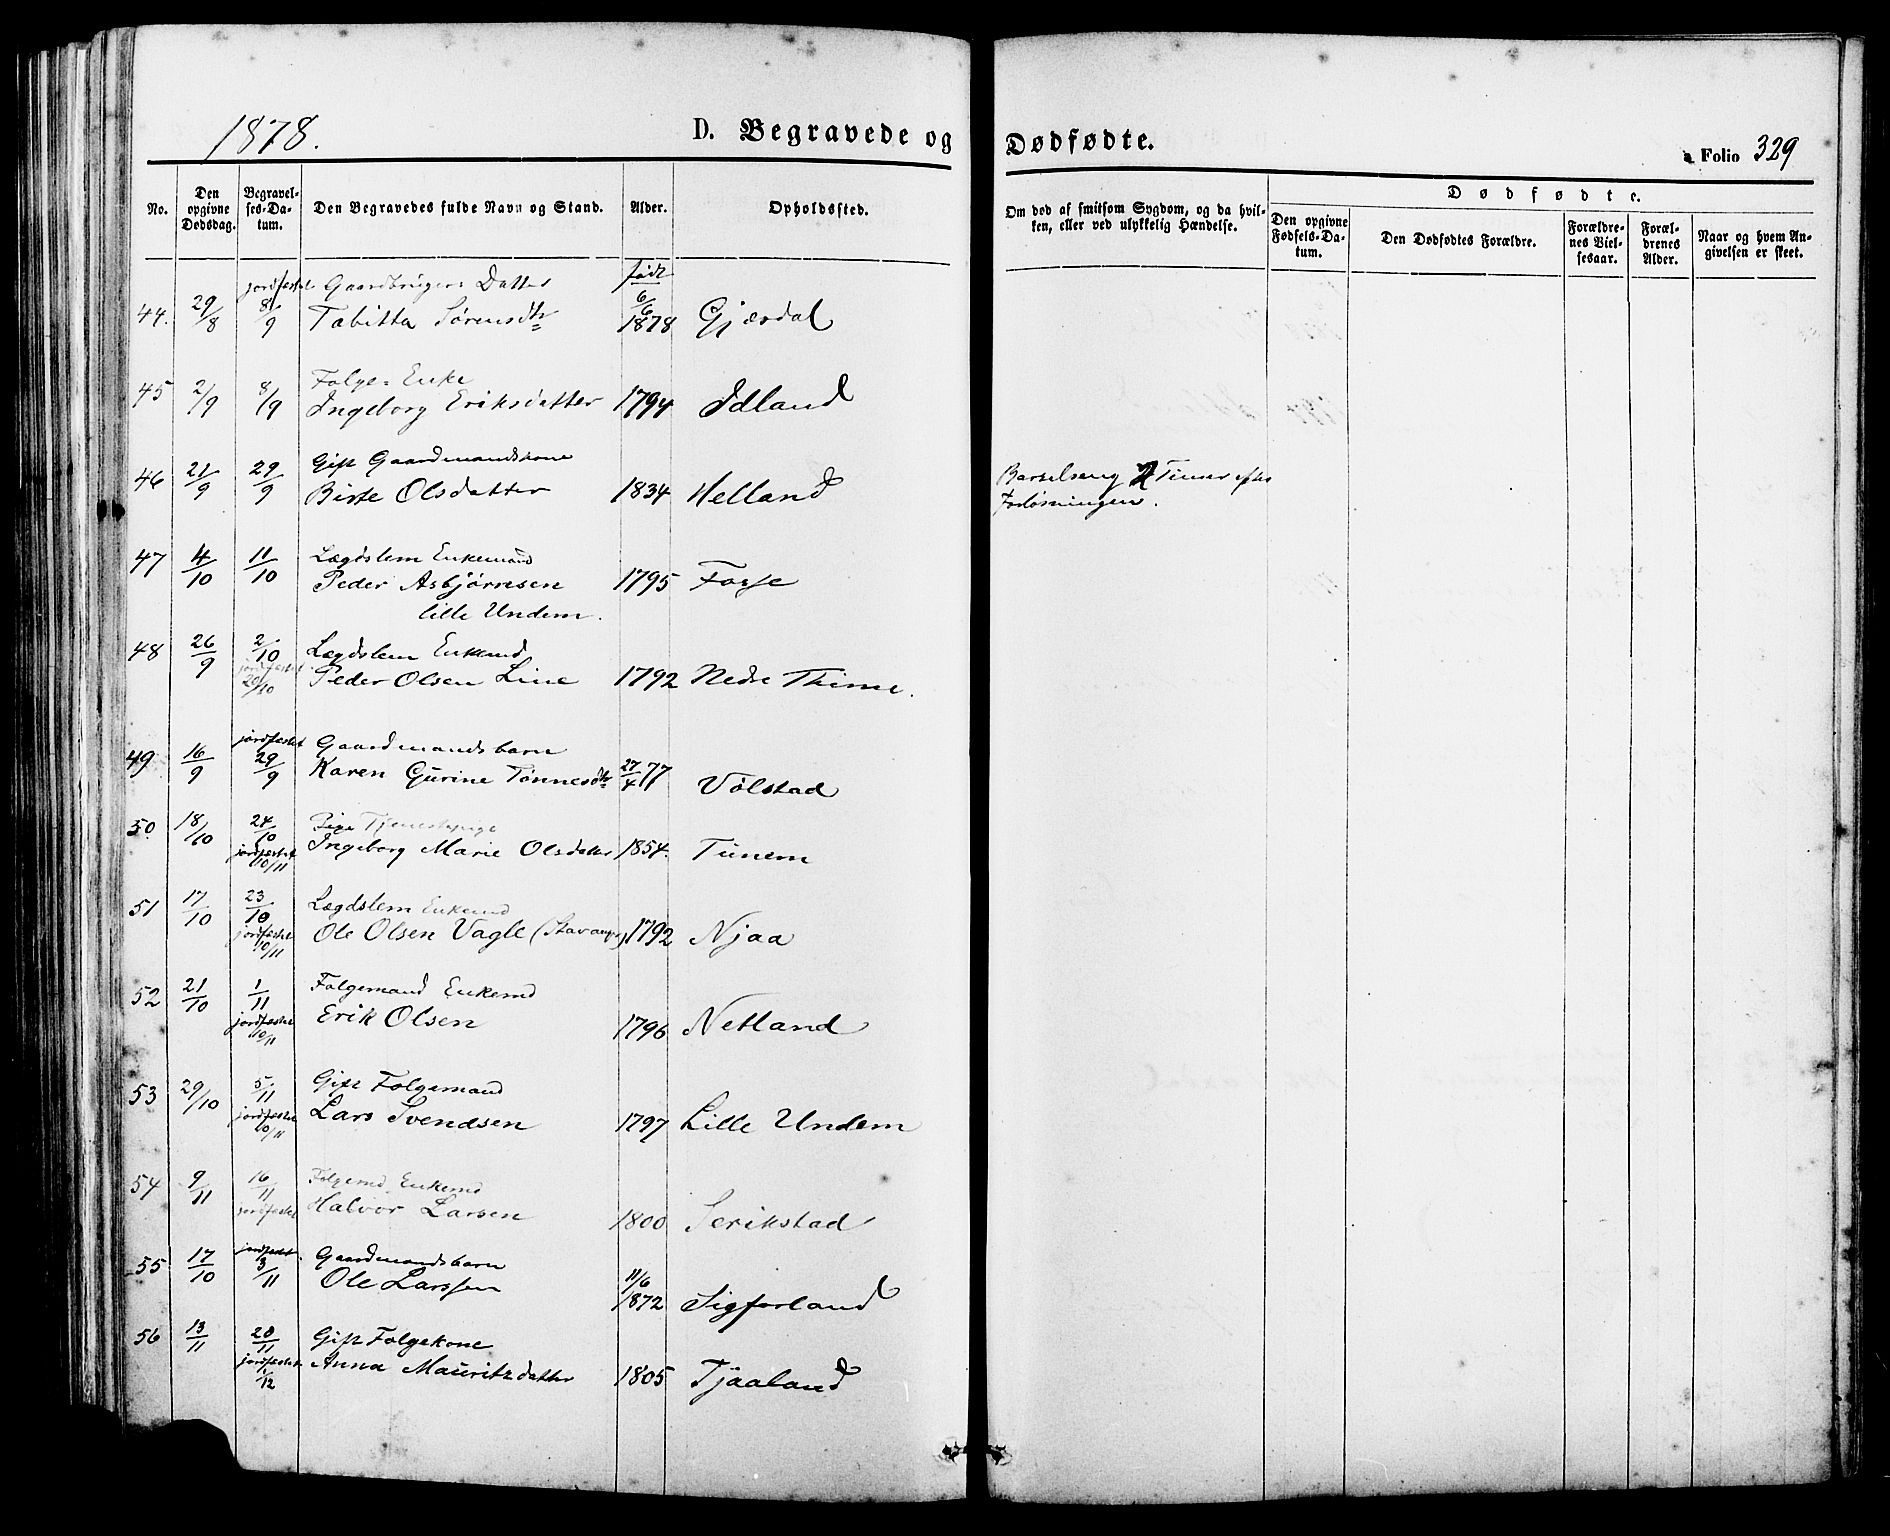 1878.
D. Begravede og
Dødfødte.
a Folio 329
No.
Den opgivne Dødsdag.
Begravelses-Datum.
Den Begravedes fulde Navn og Stand.
Alder.
Opholdssted.
Om død af smitsom Sygdom, og da hvilken, eller ved ulykkelig Hændelse.
Dødfødte.
Den opgivne Fødsels-Datum.
Den Dødfødtes Forældre.
Forældrenes Vielsesaar.
Forældrenes Alder.
Naar og hvem Angivelsen er skeet.
jordfæstet Gaardbrugers Datter født
44. 29/8 8/9 Tabitta Sørensdtr 6/6 1878 Gjærdal
Folge Enke
45 2/9 8/9 Ingeborg Eriksdatter 1794 Idland
Gift Gaardmandskone
46 21/9 29/9 Birte Olsdatter 1834 Helland
Barselseng 2 Timer efter
Forløsningen.
Lægdslem Enkemand
47 4/10 11/10 Peder Asbjørnsen 1795 Fosse
lille Undem.
Lægdslem Enkemd
48 26/9 2/10 jordfæstet 20/10 Peder Olsen Line 1792 Nedre Thime.
jordfæstet Gaardmandsbarn
49 16/9 29/9 Karen Gurine Tønnesdtr 27/4 77 Vølstad
Pige Tjenestepige
50. 18/10 24/10 jordfæstet 10/11 Ingeborg Marie Olsdatter 1854. Tunem
Lægdslem Enkemd
51 17/10 23/10 jordfæstet 10/11 Ole Olsen Vagle (Stavanger) 1792 Njaa
Folgemand Enkemd
52 21/10 1/11 jordfæstet 10/11 Erik Olsen 1796 Netland
Gift Folgemand
53 29/10 5/11 jordfæstet 10/11 Lars Svendsen 1797 Lille Undem
Folgemd Enkemd
54 9/11 16/11 jordfæstet Halvor Larsen 1800 Serikstad
jordfæstet Gaardmandsbarn
55 17/10 3/11 Ole Larssen 11/6 1872 Sigforland
Gift Folgekone
56 13/11 20/11 jordfæstet 1/12 Anna Mauritzdatter 1805 Tjaaland